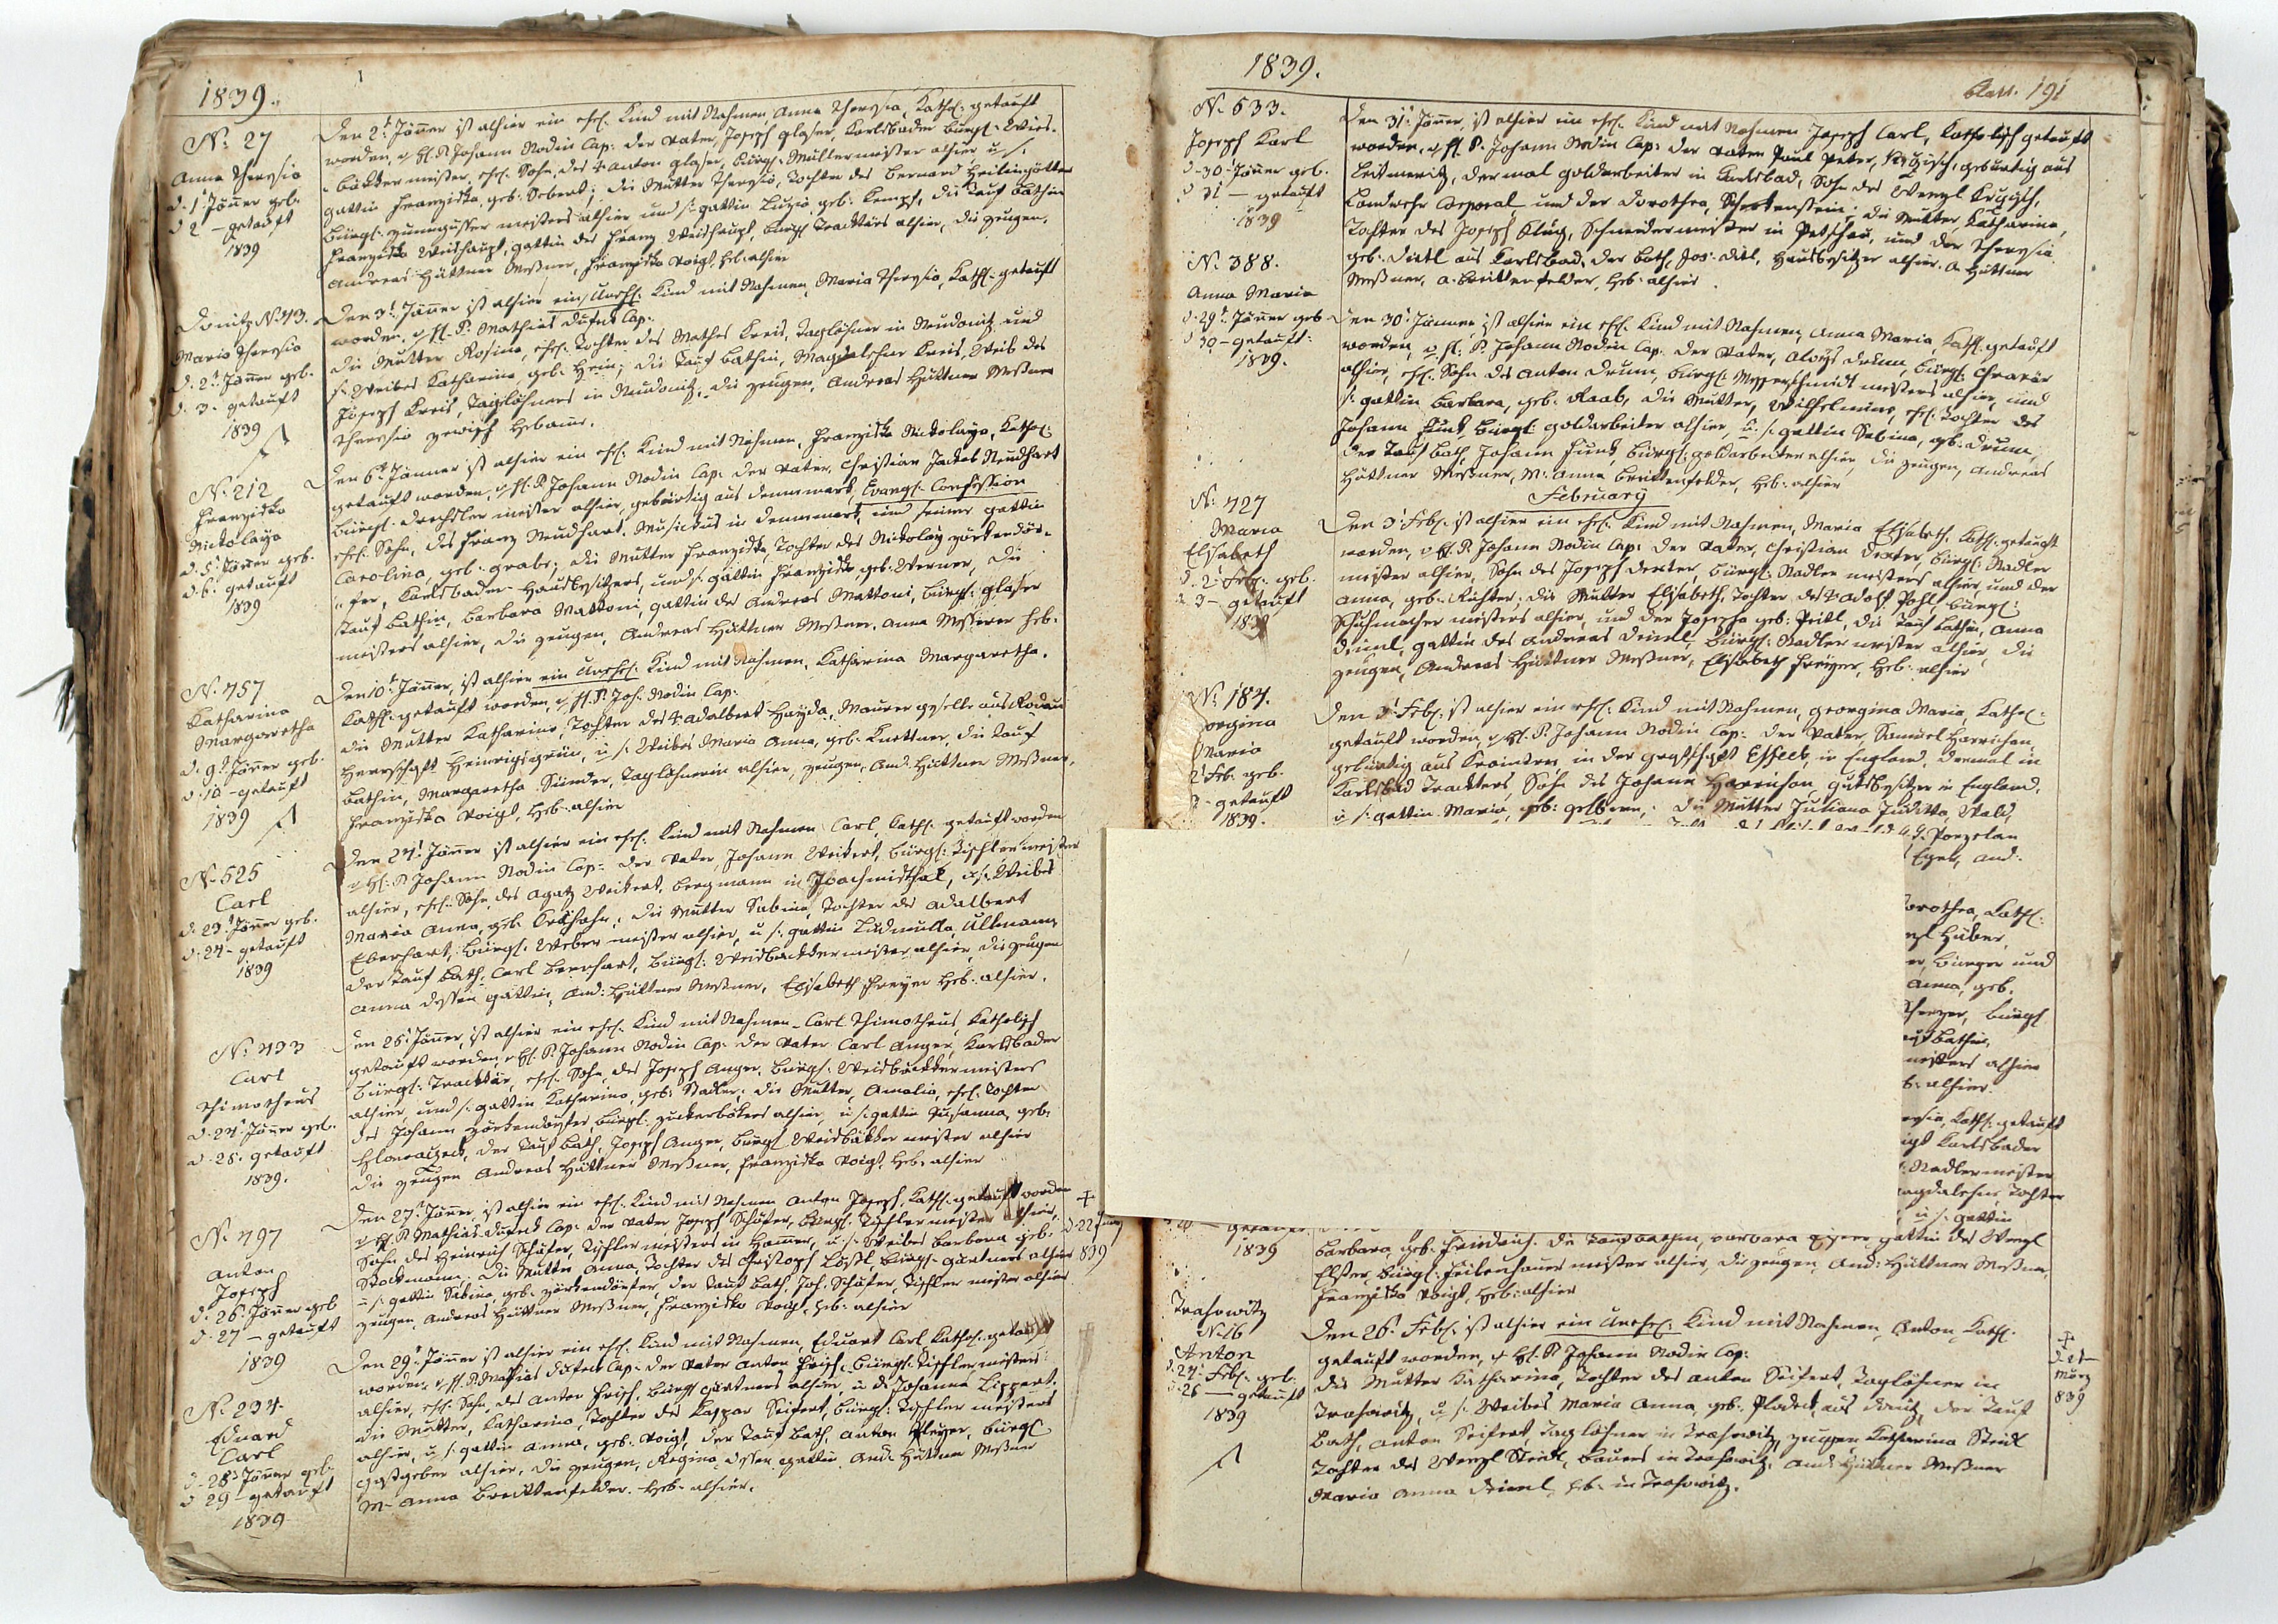 1839.
N: 27
Anna Theresia
d. 1t Jäner geb.
d 2 – getauft
1839
Den 2t Jäner ist alhier ein ehel. Kind mit Nahmen, Anna Theresia, Kathol: getauft
worden, v H. P. Johann Nodin Cap: der Vater, Joseph Glaser, Karlsbader bürgl: Weis-
bäcker meister, ehel. Sohn, des Anton Glaser, bürgl: Müllermeister alhier u s:
Gattin Franziska, geb: Sebert; die Mutter Theresia, Tochter des Bernard Heilingötter
bürgl: Zinngüsser meisters alhier und s: Gattin Luzia geb: Kempf, die Tauf Bathin
Franziska Weishaupt, Gattin des Franz Weishaupt, bürgl Tracktärs alhier, die Zeugen,
Andreas Hüttner Meßner, Franziska Voigt, Heb: alhier
Donitz N: 43.
Maria Theresia
d. 2t Jäner geb.
d. 3. getauft
1839
Den 3t Jäner ist alhier ein Unehel: Kind mit Nahmen, Maria Theresia, Kathl: getauft
worden, v H. P. Mathias Dufek Cap:
die Mutter Rosina, ehel. Tochter des Mathes Kreis, Taglöhner in Neudonitz und
s: Weibes Katharina, geb: Hein; die Tauf Bathin, Magdalehne Kreis, Weib des
Joseph Kreis, Taglöhners in Neudonitz, die Zeugen, Andreas Hüttner Meßner
Theresia Hebame.
N: 212
Franziska
Nickolaya
d. 5t Jäner geb.
d. 6. getauft
1839
Den 6t Jänner ist alhier ein ehel. Kind mit Nahmen, Franziska Nickolaya, Kathol:
getauft worden, v H. P. Johann Nodin Cap: der Vater, Christian Jackob Neudhart
bürgl. Drechsler meister alhier, gebürtig aus Dennemark, Evangl: Confession
ehel. Sohn, des Franz Neudhart, Musickus in Dennemark, und seiner Gattin
Carolina, geb: Grabe; die Mutter Franziska, Tochter des Nickolay Zörkendör-
fer, Karlsbader Hausbesitzers, und s: Gattin Franziska, geb: Werner, die
Tauf Bathin, Barbara Mattoni, Gattin des Andreas Mattoni, bürgl: Glaser
meisters alhier, die Zeugen, Andreas Hüttner Meßner. Anna Messerer Heb:
N: 757
Katharina
Margaretha
d. 9t Jäner geb.
d. 10 – getauft
1839
Den 10t Jäner, ist alhier ein Unehel: Kind mit Nahmen, Katharina Margaretha,
Kathl: getauft worden, v H. P. Joh: Nodin Cap:
die Mutter Katharina, Tochter des Adalbert Hayda, Maurer geselle aus Rodau
Herrschaft Heinrigsgrün, u s: Weibes Maria Anna, geb: Knettner, die Tauf
Bathin, Margaretha Sünder, Taglöhnerin alhier, Zeugen, And: Hüttner Meßner,
Franziska Voigt, Heb: alhier
N: 525
Carl
d. 23t Jäner geb.
d. 24 – getauft
1839
Den 24t Jäner ist alhier ein ehel. Kind mit Nahmen Carl, Kathl: getauft worden
v H: P. Johann Nodin Cap: der Vater, Johann Weikert, bürgl: Tischlermeister
alhier, ehel: Sohn, des Agatz Weikert, Bergmann in Joachmisthal, u s: Weibes
Maria Anna, geb: Krähhahn, die Mutter Sabina, Tochter des Adalbert
Eberhart, bürgl: Weber meister alhier, u s: Gattin Ludmulla, Ullmann,
der Tauf Bath, Carl Bernhart, bürgl: Weisbäcker meister alhier, die Zeugen
Anna dessen Gattin, And: Hüttner Meßner, Elisabeth Freyer Heb: alhier.
N: 433
Carl
Thimotheus
d. 24t Jäner geb.
d. 25. getauft
1839.
Den 25t Jäner, ist alhier ein ehel. Kind mit Nahmen – Carl Thimotheus, Katholisch
getauft worden, v H. P. Johann Nodin Cap: der Vater Carl Anger, Karlsbader
bürgl: Tracktär, ehel: Sohn, des Joseph Anger, bürgl: Weisbäckermeisters
alhier, und s: Gattin Katharina, geb: Stadler, die Mutter, Amalia, ehel: Tochter
des Johann Zörkendörfer, bürgl: Zuckerbäkers alhier, u s: Gattin Susanna, geb:
Hlawaizeck, der Tauf Bath, Joseph Anger, bürgl Weisbäcker meister alhier
die Zeugen Andreas Hüttner Meßner, Franziska Voigt, Heb: alhier
N: 497
Anton
Joseph
d. 26t Jäner geb
d. 27 – getauft
1839
Den 27t Jäner, ist alhier ein ehel. Kind mit Nahmen Anton Joseph, Kathl: getauft worden
v H. P. Mathias Dufek Cap: der Vater Joseph Schäfer, bürgl: Tischlermeister alhier,
Sohn des Heinrich Schäfer, Tischlermeisters in Hammer, u. s: Weibes Barbara geb:
Stockmann. die Mutter Anna, Tochter des Christoph Lößl, bürgl: Gärtners alhier
u s: Gattin Sabina, geb: Zörkendörfer der Tauf Bath, Jos: Schäfer, Tischler meister alhier
Zeugen, Andreas Hüttner Meßner, Franziska Voigt, Heb: alhier
839
N: 234.
Eduard
Carl
d. 28t Jäner geb:
d 29 – getauft
1839
Den 29t Jäner ist alhier ein ehel: Kind mit Nahmen, Eduart Carl, Kathol: getauft
worden, v H. P. Mathias Dufek Cap: der Vater Anton Frisch, bürgl: Tischlermeisters
alhier, ehel: Sohn, des Anton Frisch, bürgl Gärtners alhier, u d. Johanna Lippert.
die Mutter, Katharina, Tochter des Kaspar Seifert, bürgl: Tischler meisters
alhier, u s: Gattin Anna, geb: Voigt, der Tauf Bath, Anton Meyer, bürgl
Gastgeber alhier, die Zeugen, Regina dessen Gattin, And: Hüttner Meßner
M: Anna Breittenfelder. Heb: alhier.
1839.
blatt. 191
N: 533.
Joseph Karl
d 30t Jäner geb.
d 31 – getauft
1839
Den 31t Jäner, ist alhier ein ehel. Kind mit Nahmen Joseph Carl, Katholisch getauft
worden, v H. P. Johann Nodin Cap: der Vater Paul Peter, gebürtig aus
Leitmeritz, dermal Goldarbeiter in Karlsbad, Sohn des Wenzl
Landwehr Corporal und der Dorothea, Scherkenstein; die Mutter, Katharina,
Tochter des Joseph Klug, Schneidermeister in Petschau, und der Theresia
geb: Dietl aus Karlsbad, der Bath, Jos: Ditl, Hausbesitzer alhier. A Hüttner
Meßner, A. Breittenfelder, Heb: alhier.
N: 388.
Anna Maria
d. 29t Jäner geb
d 30 – getauft:
1839.
Den 30t Jänner ist alhier ein ehel. Kind mit Nahmen, Anna Maria, Kathl. getauft
worden, v H: P. Johann Nodin Cap: der Vater, Aloys Drum, bürgl: Gravör
alhier, ehel: Sohn des Anton Drum, bürgl: Messerschmidt meisters alhier, und
s: Gattin Barbara, geb: Raab, die Mutter, Wilhelmine, ehl: Tochter des
Johann Funk, bürgl: Goldarbeiter alhier, u: s: Gattin Sabina, geb: Drum,
der Tauf Bath, Johann Funk, bürgl: Goldarbeiter alhier, die Zeugen, Andreas
Hüttner Meßner, M: Anna Breittenfelder, Heb: alhier
February
N: 427
Maria
Elisabeth
d. 2t Feb: geb.
d. 3 – getauft
1839
Den 3t Feb: ist alhier ein ehel: Kind mit Nahmen, Maria Elisabeth, Kathl: getauft
worden, v H. P. Johann Nodin Cap: der Vater, Christian Dexter, bürgl: Nadler
meister alhier, Sohn des Joseph Dexter, bürgl: Nadler meisters alhier, und der
Anna, geb: Richter; die Mutter Elisabeth, Tochter des Adolf Pohl, bürgl:
Schuhmacher meisters alhier, und der Josepha geb: Peitl, die Tauf Bathin, Anna
Deinl, Gattin des Andreas Deinl, bürgl: Nadler meister alhier, die
Zeugen, Andreas Hüttner Meßner, Elisabeth Freyer, Heb: alhier
N: 184.
Georgina
Maria
2t Feb. geb.
3 – getauft
1839.
Den 3t Feb: ist alhier ein ehel: Kind mit Nahmen, Georgina Maria, Kathol:
getauft worden, v H. P. Johann Nodin Cap: der Vater, Samuel Harrichan
gebürtig aus in der Grafschaft in England, dermal in
Karlsbad Trackters, Sohn des Johann Harrichan, Gutsbesitzer in England,
u s: Gattin Maria, geb: ; die Mutter Juliana Juditta, Wald,
Porzelan
Eger, And:
Dorothea, Kathl:
Huber,
Bürger und
Anna, geb.
bürgl
Bathin,
meisters alhier
alhier.
Kathl: getauft
Karlsbader
Nadlermeister
Magdalehne Tochter
u s: Gattin
getauft
1839
Barbara, geb: Friedrich. die Tauf Bathin, Barbara Gattin des Wenzl
Elster, bürgl: Feilenhauer meister alhier, die Zeugen, And: Hüttner Meßner,
Franziska Voigt, Heb: alhier
Trahowitz
N: 16
Anton
24t Feb: geb:
26 – getauft
1839
Den 26t Feb: ist alhier ein Unehel: Kind mit Nahmen, Anton, Kathl:
getauft worden, v H. P. Johann Nodin Cap:
die Mutter Katharina, Tochter des Anton Seifert, Taglöhner in
Trahowitz, u s: Weibes Maria Anna, geb: Plodeck, aus , der Tauf
Bath, Anton Seifert, Taglöhner in Trahowitz, Zeugen Katharina Steidl
Tochter des Wenzl Steidl, Bauers in Trahowitz, And: Hüttner Meßner
Maria Anna Deiml, Heb: in Trahowitz.
März
839